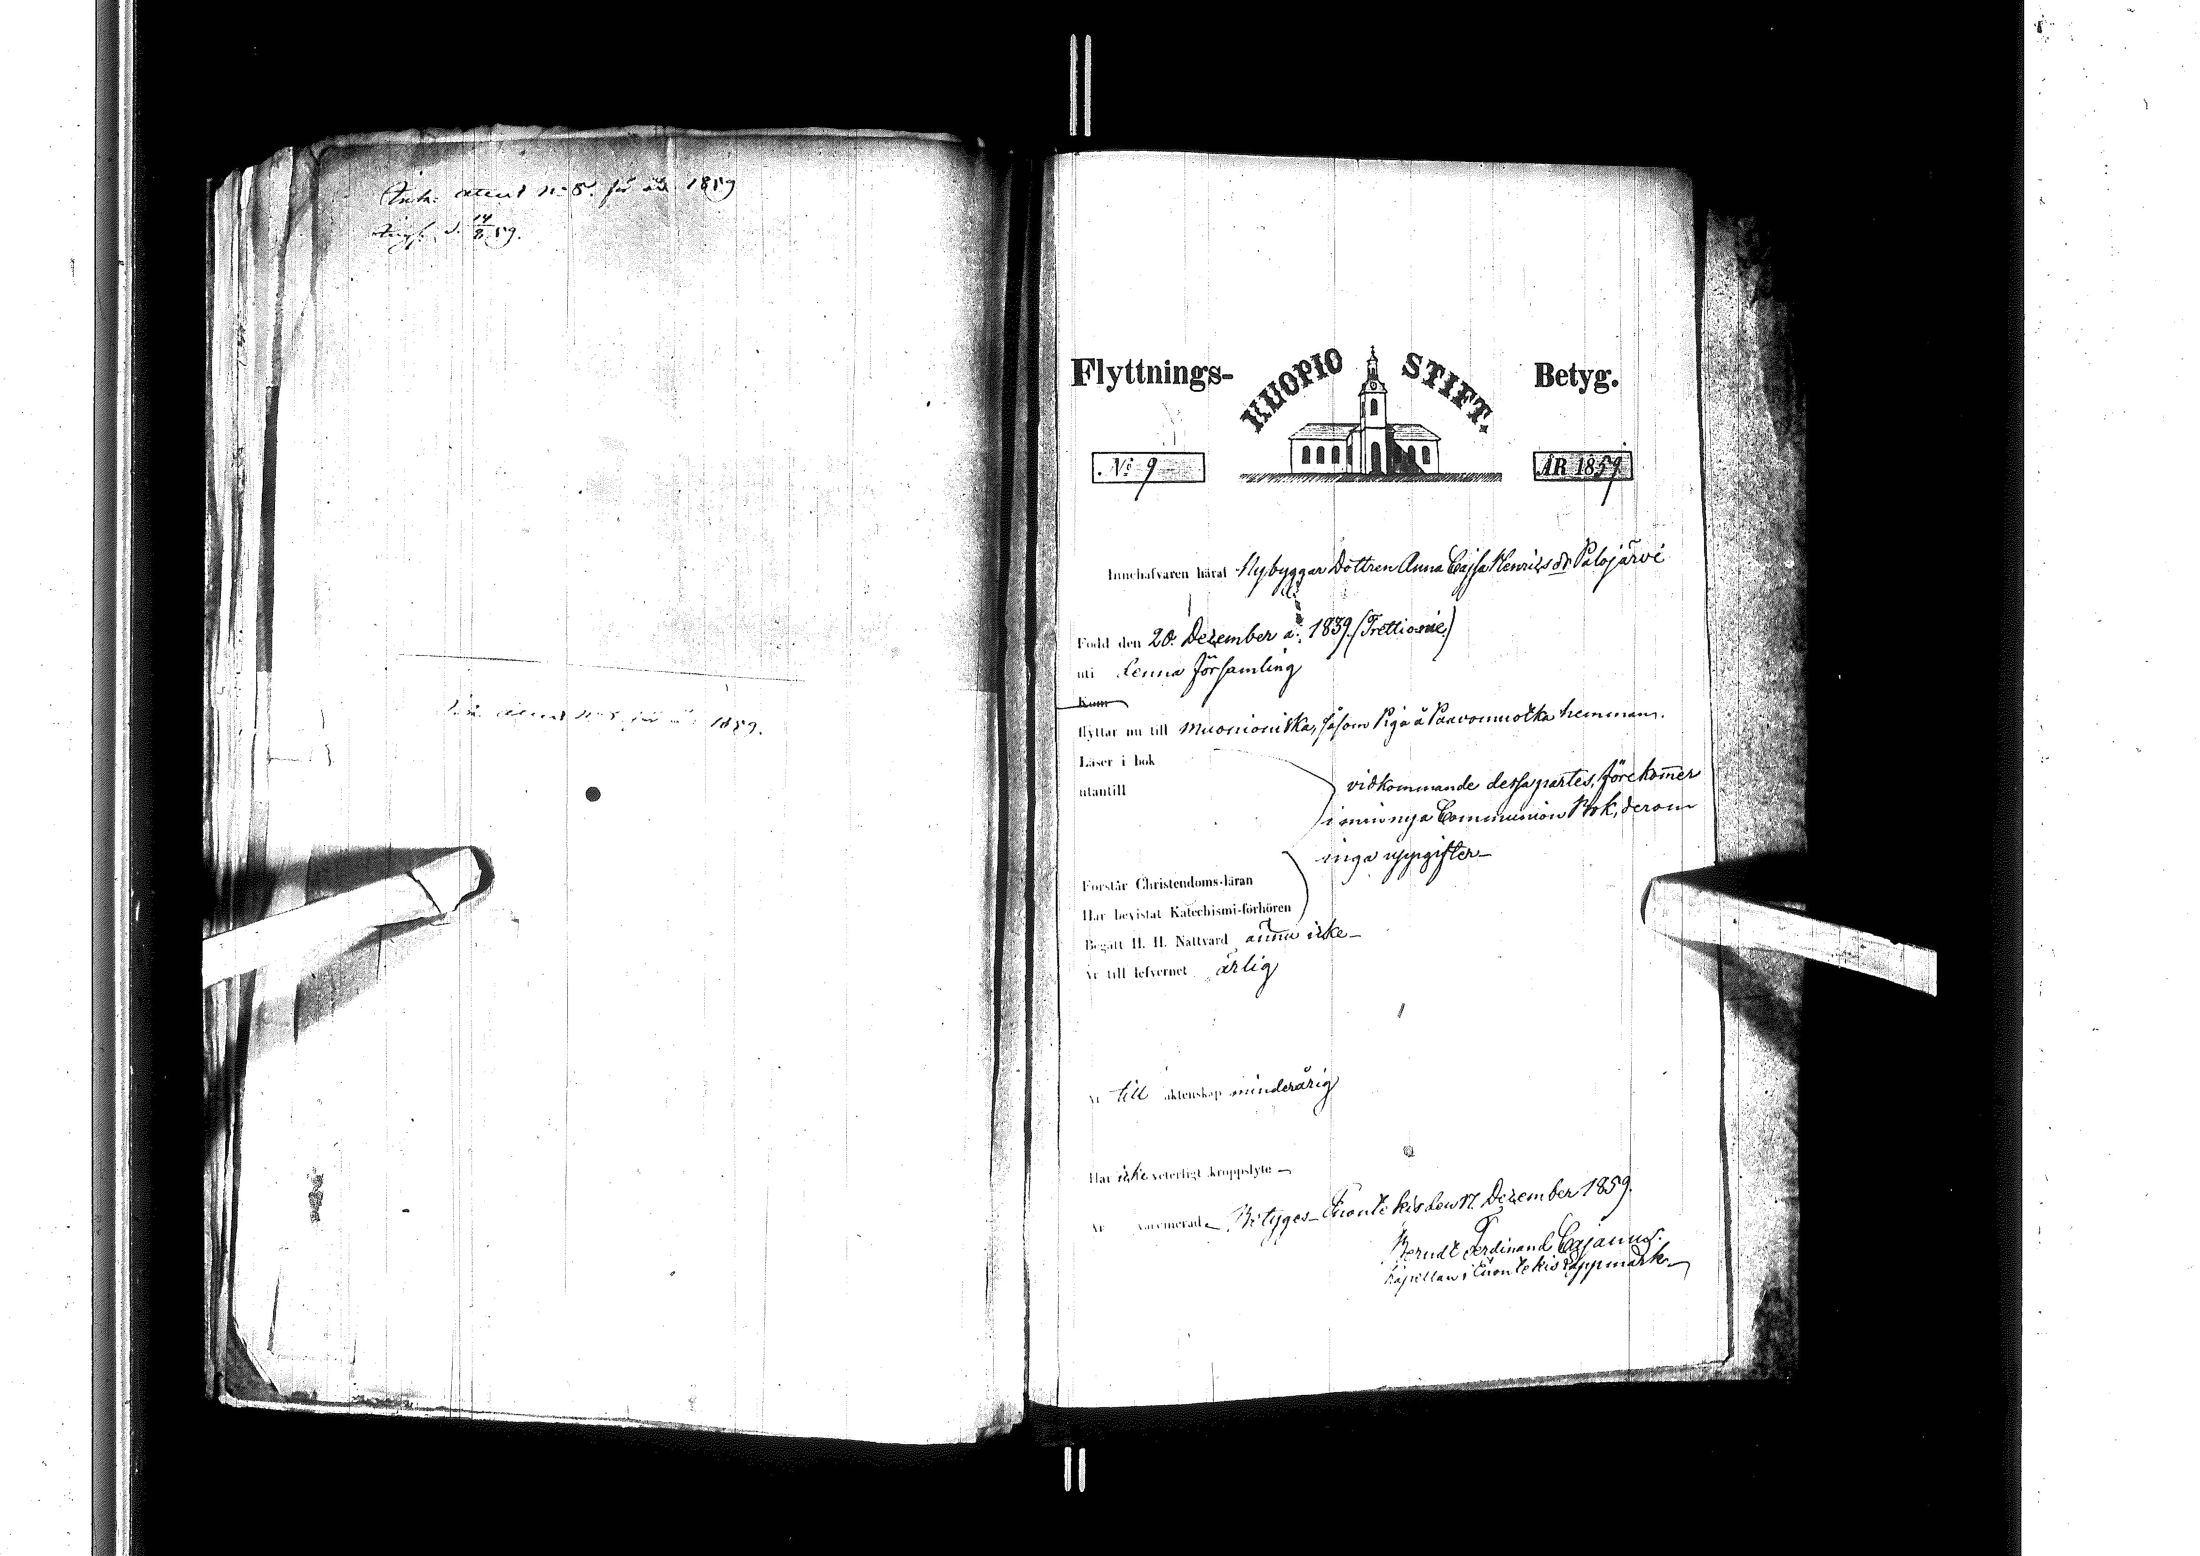 attest № 8. för år 1859
d. 14/8 59.
attest № 8 för år 1859.
Flyttnings- KUOPIO STIFT. Betyg.
№ 9 ÅR 1859
Innehafvaren häraf Nybyggar Dottren Anna Cajsa Henricsdr Palojärvi
Född den 20. Dezember a: 1839. (Trettionie)
uti denna församling
Kom
flyttar nu till Muonioniska, såsom Piga å Paavonuotka hemman.
Läser i bok
utantill
vidkommande dessa partes, förekom̄er
i min nya Communion Bok, derom
inga uppgifter—
Förstår Christendoms-läran
Har bevistat Katechismi-förhören
Begått H. H. Nattvard ännu icke—
Är till lefvernet ärlig
Är till äktenskap minderårig
Har icke veterligt kroppslyte—
Är vaccinerad— Betygas— Enontekis den 17. Dezember 1859.
Berndt Ferdinand Cajanus.
Kapellan i Enontekis Lappmark—